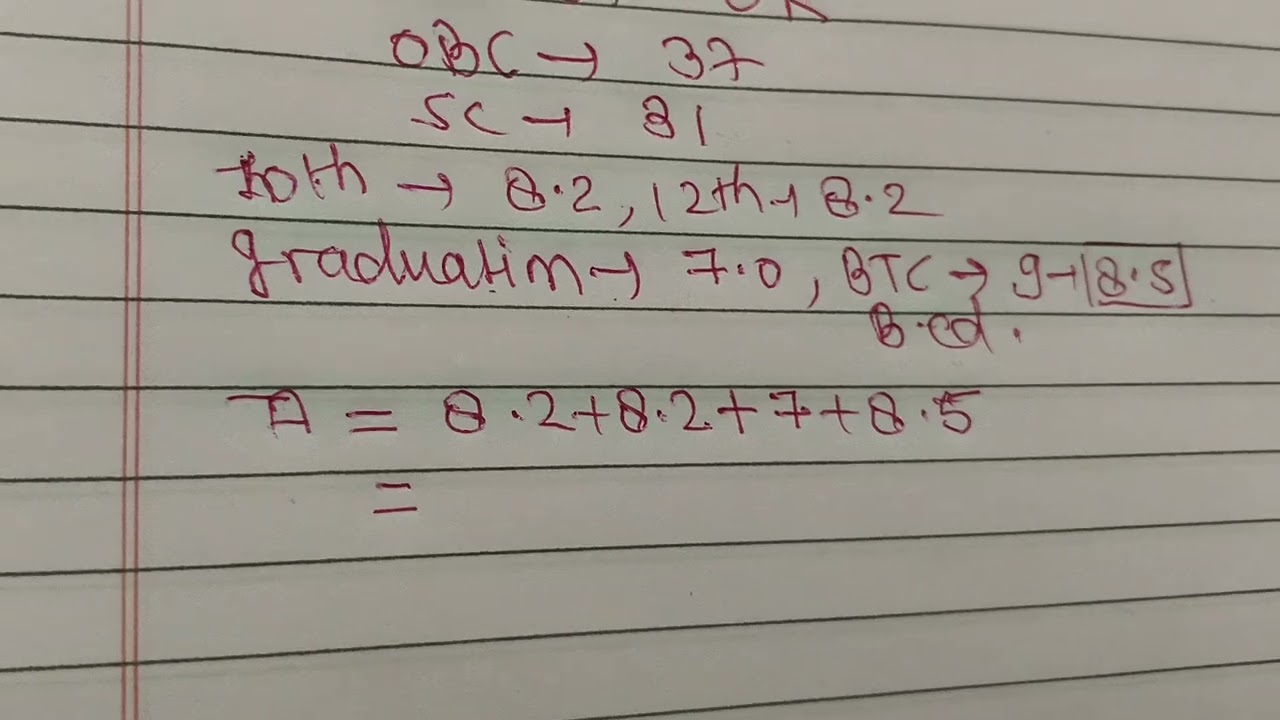 OBC → 37
SC → 31
10th → 8.2, 12th → 8.2
graduation → 7.0, BTC → 9 → 8.5
B.ed.
A = 8.2+8.2+7+8.5
=